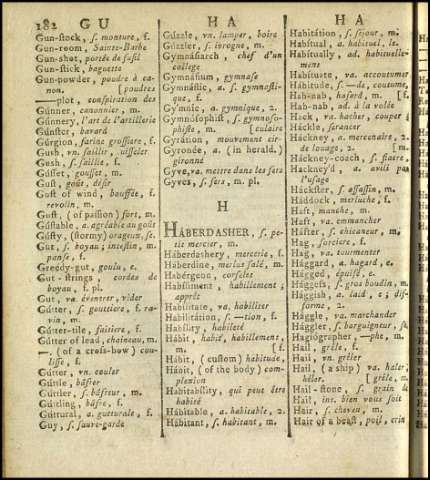 182 G U H A H A
Gun-stock, s. monture, f.
Gun-room, Sainte-Barbe
Gun-shot, portée de fusil
Gun-stick, baguette
Gun-powder, poudre à ca-
non. [poudres
—plot, conspiration des
Gúnner, canonnier, m.
Gúnnery, l'art de l'artillerie
Gúnster, bavard
Gúrgion, farine grossiere, f.
Gush, vn. saillir, ruisseler
Gesh, s. saillie, f.
Gússet, gousset, m.
Gust, goût, désir
Gust of wind, bouffée, f.
revolin, m.
Gust, (of passion) fort, m.
Gústable, a. agréable au goût
Gústy, (stormy) orageux, se
Gut, s. boyau; intestin, m.
panse, f.
Greedy-gut, goulu, e.
Gut-strings, cordes de
boyau, f. pl.
Gut, va. éventrer, vider
Gútter, s. gouttiere, f. ra-
vin, m.
Gútter-tile, faitiere, f.
Gutter of lead, chaineau, m.
—. (of a cross-bow) cou-
lisse, f.
Gútter, vn. couler
Gúttle, bâfrer
Gúttler, s. bâfreur, m.
Gúttling, bâfre, f.
Gúttural, a. gutturale, f.
Guy, s. sauve-garde
Gúzzle, vn. lamper, boire
Gúzzler, s. ivrogne, m.
Gymnásiarch, chef d'un
college
Gymnásium, gymnase
Gymnástic, a. s. gymnasti-
que, f.
Gy'mnic, a. gymnique, 2.
Gymnósophist, s. gymnoso-
phiste, m. [culaire
Gyrátion, mouvement cir-
Gyronée, a. (in herald.)
gironné
Gyve, va. mettre dans les fers
Gyves, s. fers, m. pl.
H
HÁBERDASHER, s. pe-
tit mercier, m.
Háberdashery, mercerie, f.
Háberdine, merlus salé, m.
Habérgeon, corselet
Habíliment, habillement;
apprêt
Habílitate, va. habiliter
Habilitátion, s. —tion, f.
Habílity, habileté
Hábit, habit, habillement,
m. [f.
Hábit, (custom) habitude,
Hábit, (of the body) com-
plexion
Habitabílity, qui peut être
habité
Hábitable, a. habitable, 2.
Hábitant, s. habitant, m.
Habitátion, s. séjour, m.
Habítual, a. habituel, le.
Habítually, ad. habituelle-
ment
Habítuate, va. accoutumer
Hábitude, s. —de, coutume,
Hab-nab, hasard, m. [f.
Hab-nab, ad. à la volée
Hack, va. hacher, couper
Háckle, serancer
Háckney, a. mercenaire, 2.
de louage, 2. [m.
Háckney-coach, s. fiacre,
Háckney'd, a. avili par
l'usage
Háckster, s. assassin, m.
Háddock, merluche, f.
Haft, manche, m.
Haft, va. emmancher
Háfter, s. chicaneur, m.
Hag, sorciere, f.
Hag, va. tourmenter
Hággard, a. hagard, e.
Hágged, épuisé, e.
Hággess, s. gros boudin, m.
Hággish, a. laid, e; dif-
forme, 2.
Hággle, va. marchander
Hággler, s. barguigneur,
Hagiógrapher, —phe, m.
Hail, grêle, f.
Hail, vn. grêler
Hail, (a ship) va. haler,
héler. [grêle, m.
Hail-stone, s. grain de
Hail, int. bien vous soit
Hair, s. cheveu, m.
Hair of a beast, poil, crin